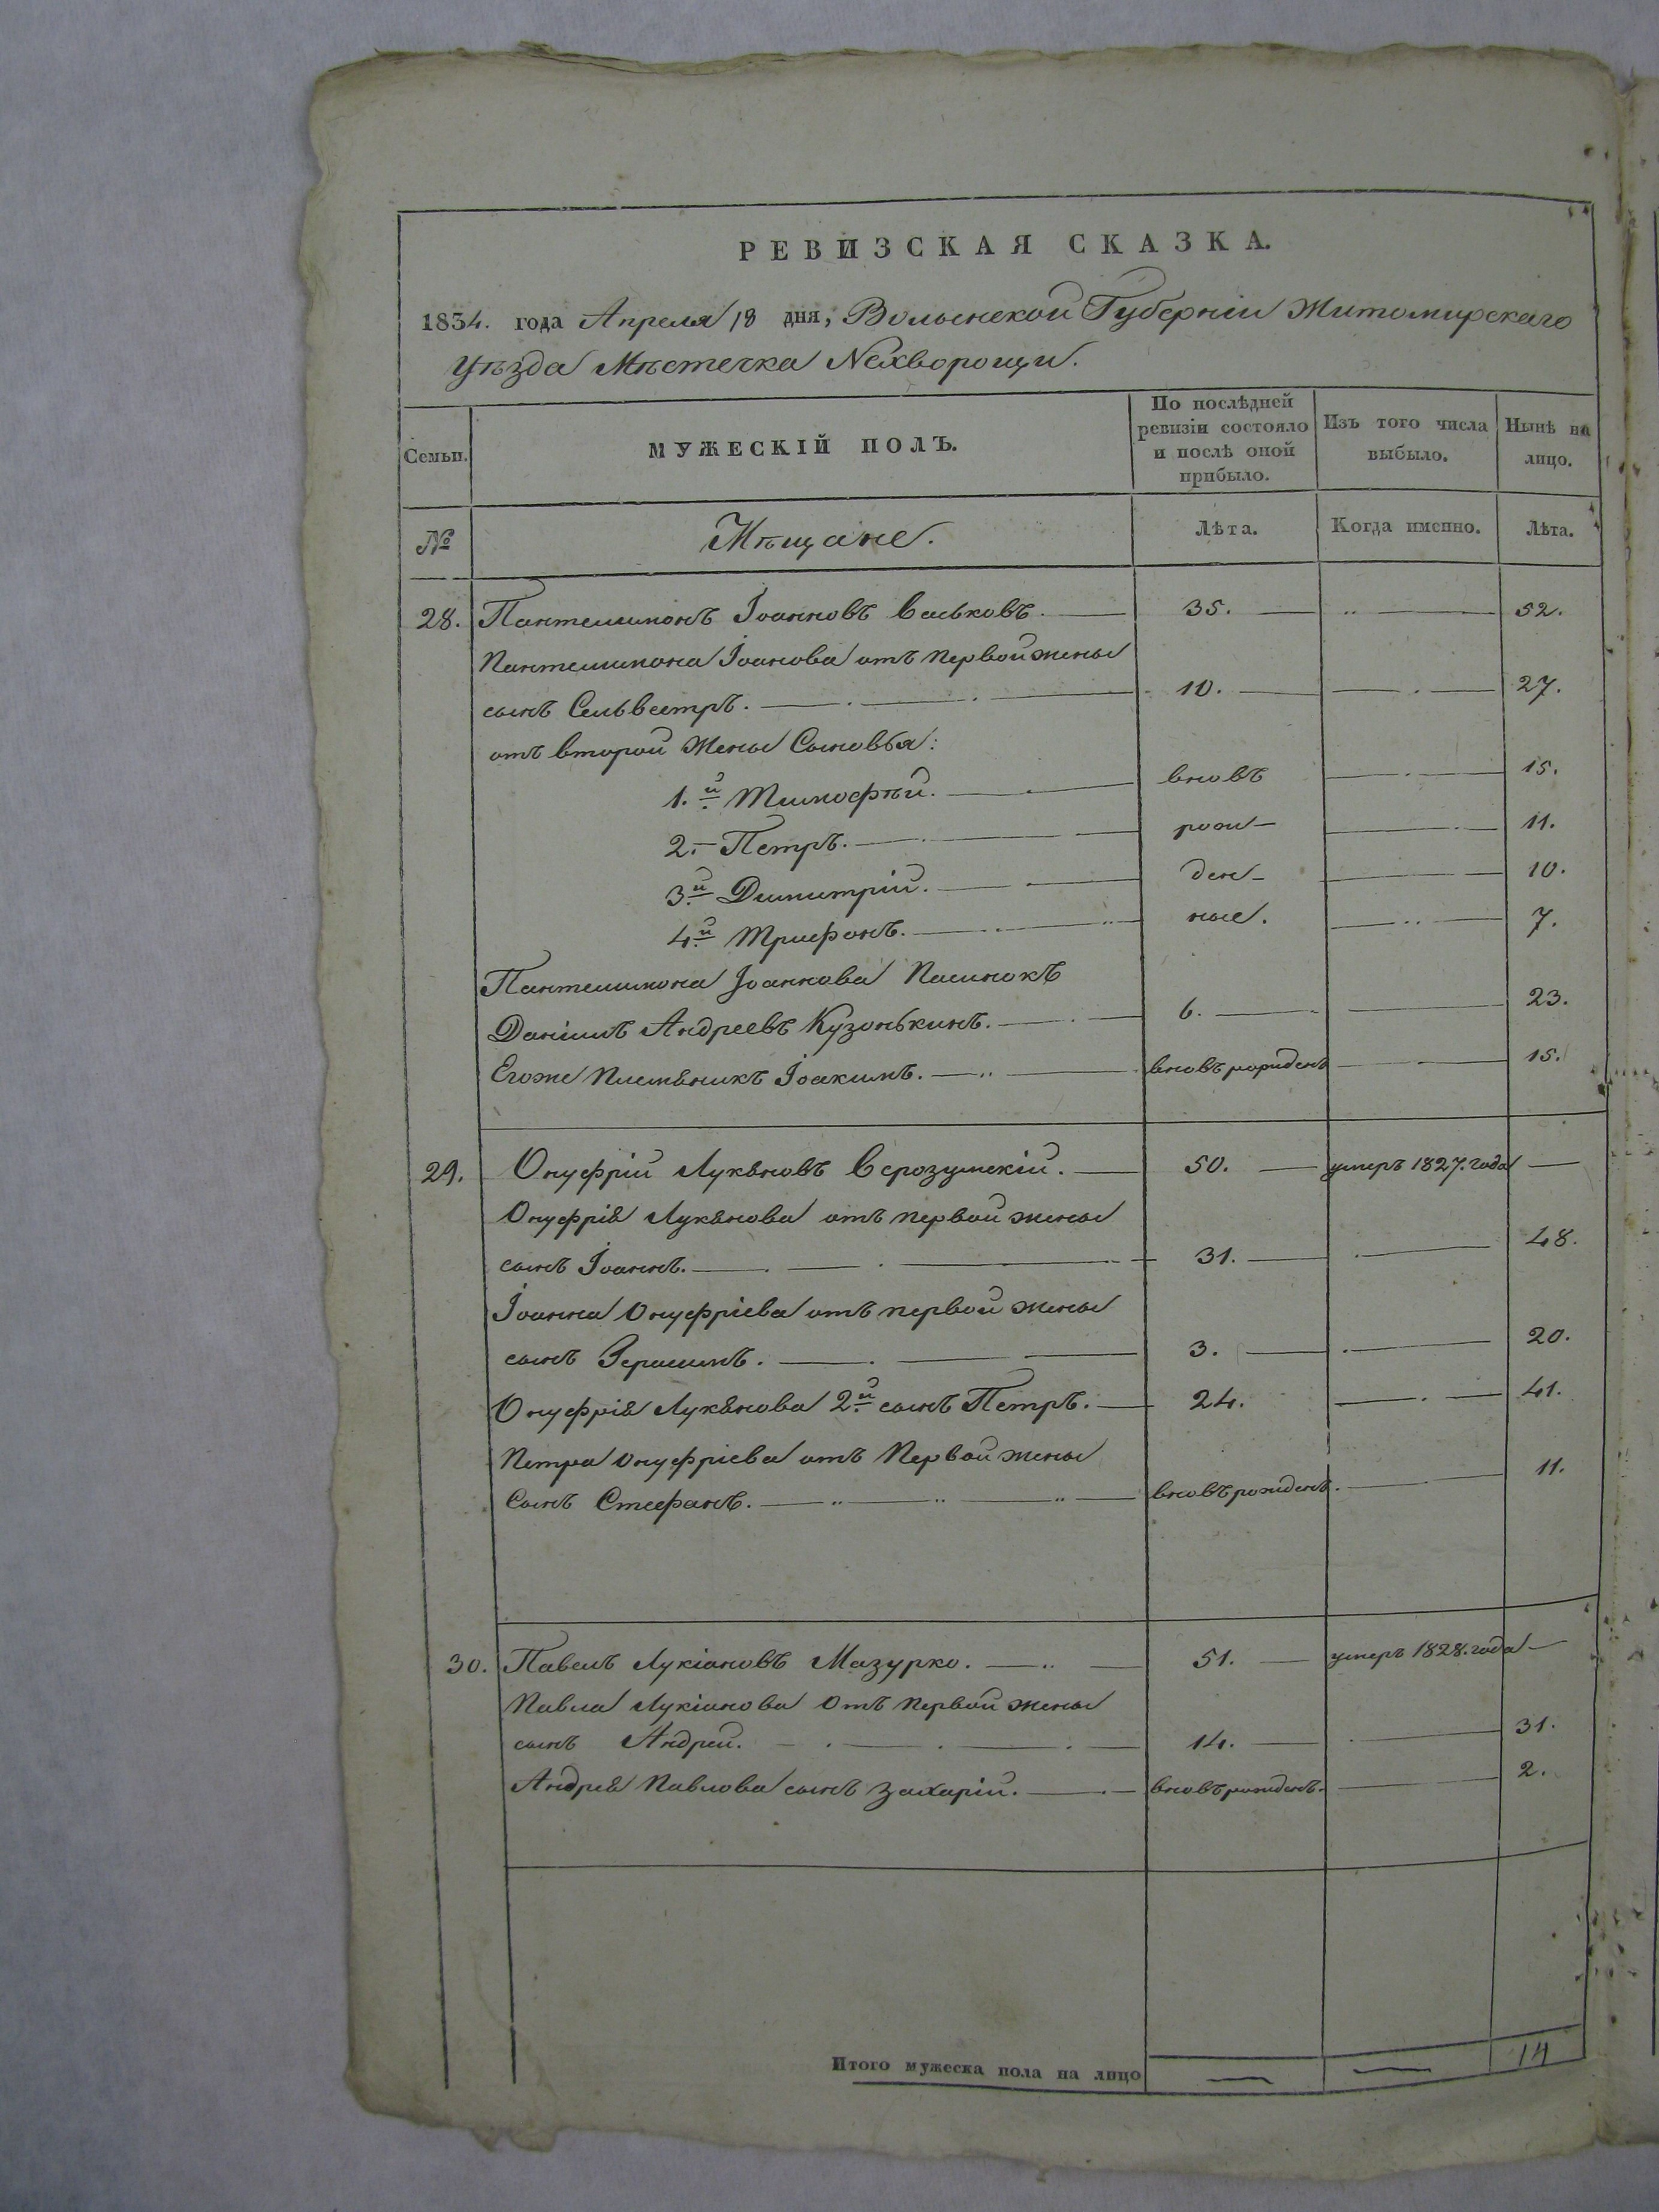 РЕВИЗСКАЯ СКАЗКА.
1834. года Апреля 18 дня, Волынской Губерніи Житомирскаго
Уѣзда Мѣстечка Нехворощи.
Семьи.
МУЖЕСКІЙ ПОЛЪ.
По послѣдней ревизіи состояло и послѣ оной прибыло.
Изъ того числа выбыло.
Нынѣ на лицо.
№ Мѣщане. Лѣта. Когда именно. Лѣта.
28. Пантелимонъ Іоанновъ Васьковъ. 35. 52.
Пантелимона Іоанова отъ первой жены
сынъ Сельвестръ. 10. 27.
отъ второй жены Сыновья:
1.й Тимофѣй. вновь 15.
2. Петръ. рож- 11.
3.й Димитрій. ден- 10.
4.й Трифонъ. ные. 7.
Пантелимона Іоаннова Пасинокъ
Даніилъ Андреевъ Кузонькинъ. 6. 23.
Егоже Племѣникъ Іоакимъ. вновь рожденъ 15.
29. Онуфрій Лукяновъ Верозумскій. 50. умеръ 1827. года
Онуфрія Лукянова отъ первой жены
сынъ Іоаннъ. 31. 48.
Іоанна Онуфріева отъ первой жены
сынъ Герасимъ. 3. 20.
Онуфрія Лукянова 2.й сынъ Петръ. 24. 41.
Петра Онуфріева отъ Первой жены
Сынъ Стефанъ. вновь рожденъ. 11.
30. Павелъ Лукіановъ Мазурко. 51. умеръ 1828. года
Павла Лукіанова Отъ первой жены
сынъ Андрей. 14. 31.
Андрея Павлова сынъ Захарій. вновь рожденъ. 2.
Итого мужеска пола на лицо 14